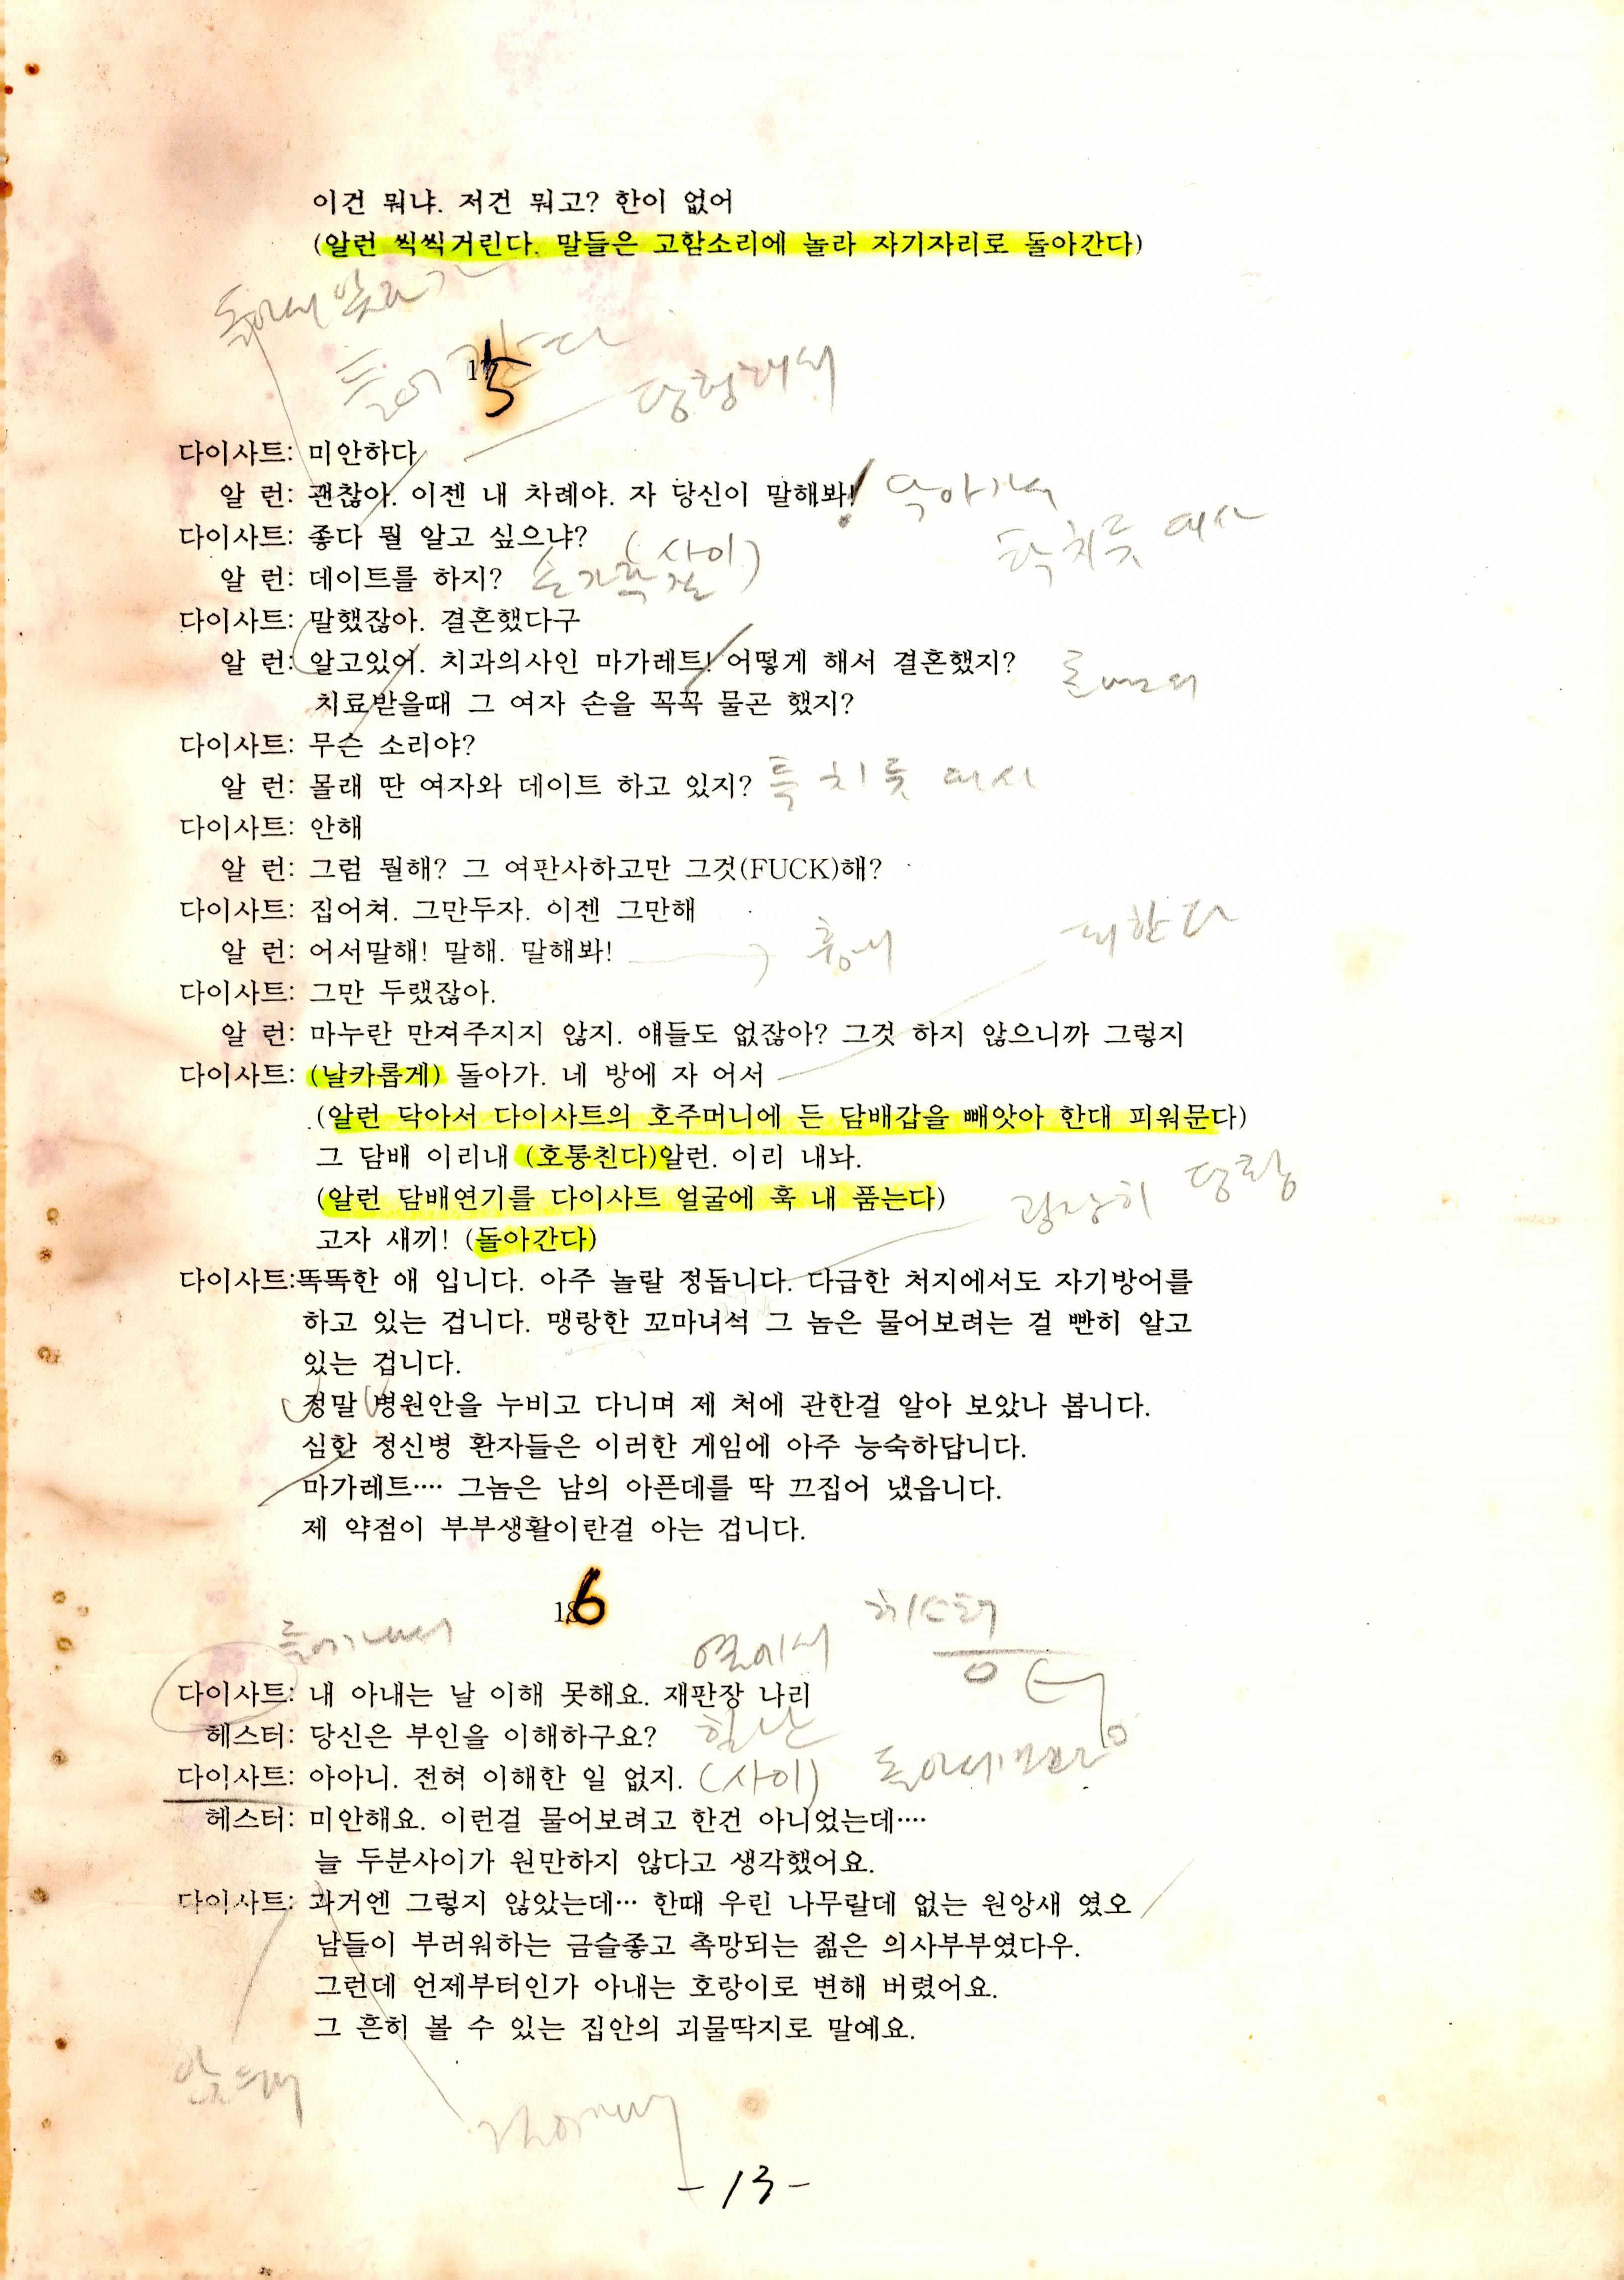 이건 뭐냐. 저건 뭐고? 한이 없어
(알런 씩씩거린다. 말들은 고함소리에 놀라 자기자리로 돌아간다)
돌아서
들어간다
15
다이사트: 미안하다
알 런: 괜찮아. 이젠 내 차례야. 자 당신이 말해봐!
다이사트: 좋다 뭘 알고 싶으냐?
툭 치듯 대사
알 런: 데이트를 하지?
(사이)
다이사트: 말했잖아. 결혼했다구
알 런: 알고있어. 치과의사인 마가레트! 어떻게 해서 결혼했지?
치료받을때 그 여자 손을 꼭꼭 물곤 했지?
다이사트: 무슨 소리야?
알 런: 몰래 딴 여자와 데이트 하고 있지? 툭 치듯 대사
다이사트: 안해
알 런: 그럼 뭘해? 그 여판사하고만 그것(FUCK)해?
다이사트: 집어쳐. 그만두자. 이젠 그만해
피한다
알 런: 어서말해! 말해. 말해봐!
흥내
다이사트: 그만 두랬잖아.
알 런: 마누란 만져주지지 않지. 얘들도 없잖아? 그것 하지 않으니까 그렇지
다이사트: (날카롭게) 돌아가. 네 방에 자 어서
(알런 닥아서 다이사트의 호주머니에 든 담배갑을 빼앗아 한대 피워문다)
그 담배 이리내 (호통친다)알런. 이리 내놔.
(알런 담배연기를 다이사트 얼굴에 훅 내 품는다)
굉장히 당황
고자 새끼! (돌아간다)
다이사트:똑똑한 애 입니다. 아주 놀랄 정돕니다. 다급한 처지에서도 자기방어를
하고 있는 겁니다. 맹랑한 꼬마녀석 그 놈은 물어보려는 걸 빤히 알고
있는 겁니다.
정말 병원안을 누비고 다니며 제 처에 관한걸 알아 보았나 봅니다.
심한 정신병 환자들은 이러한 게임에 아주 능숙하답니다.
마가레트···· 그놈은 남의 아픈데를 딱 끄집어 냈읍니다.
제 약점이 부부생활이란걸 아는 겁니다.
16
들어가면서
옆에서
히스테
다이사트: 내 아내는 날 이해 못해요. 재판장 나리
헤스터: 당신은 부인을 이해하구요?
힘난
다이사트: 아아니. 전혀 이해한 일 없지. (사이)
헤스터: 미안해요. 이런걸 물어보려고 한건 아니었는데····
늘 두분사이가 원만하지 않다고 생각했어요.
다이사트: 과거엔 그렇지 않았는데··· 한때 우린 나무랄데 없는 원앙새 였오
남들이 부러워하는 금슬좋고 촉망되는 젊은 의사부부였다우.
그런데 언제부터인가 아내는 호랑이로 변해 버렸어요.
그 흔히 볼 수 있는 집안의 괴물딱지로 말예요.
- 13 -